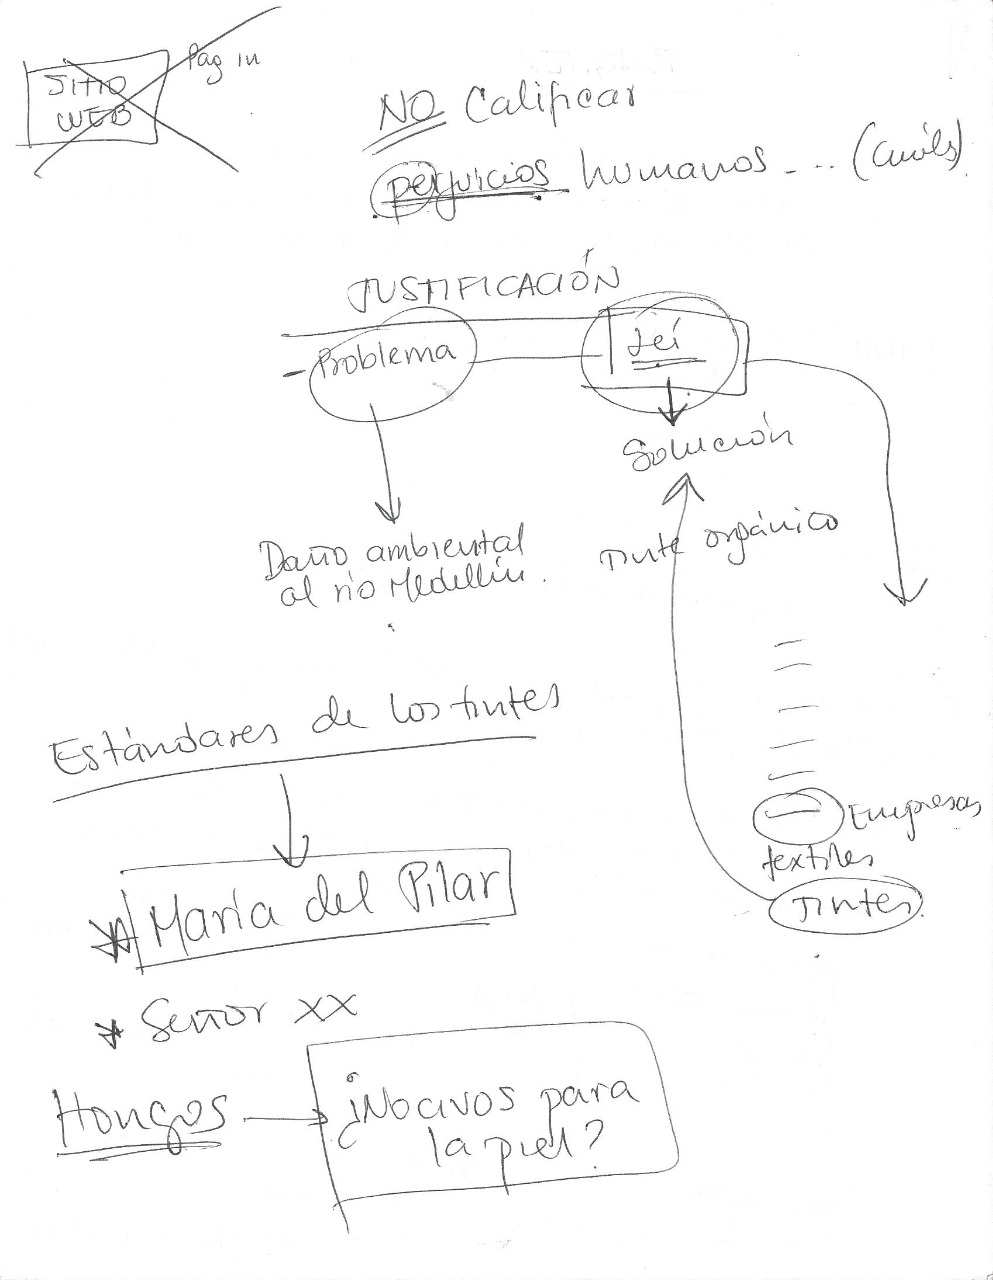 SITIO
WEB
Pag in
NO Calificar
perjuicios humanos ... (cuáles)
JUSTIFICACIÓN
- Problema
Solución
Daño ambiental
al río Medellín.
Tinte orgánico
Estándares de los tintes
Empresas
textiles
Tintes.
* María del Pilar
* Señor XX
Hongos
¿Nocivos para
la piel?